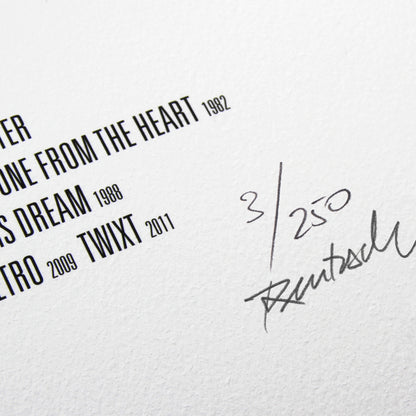 TER
ONE FROM THE HEART 1982
IS DREAM 1988
TRO 2009 TWIXT 2011
3/250